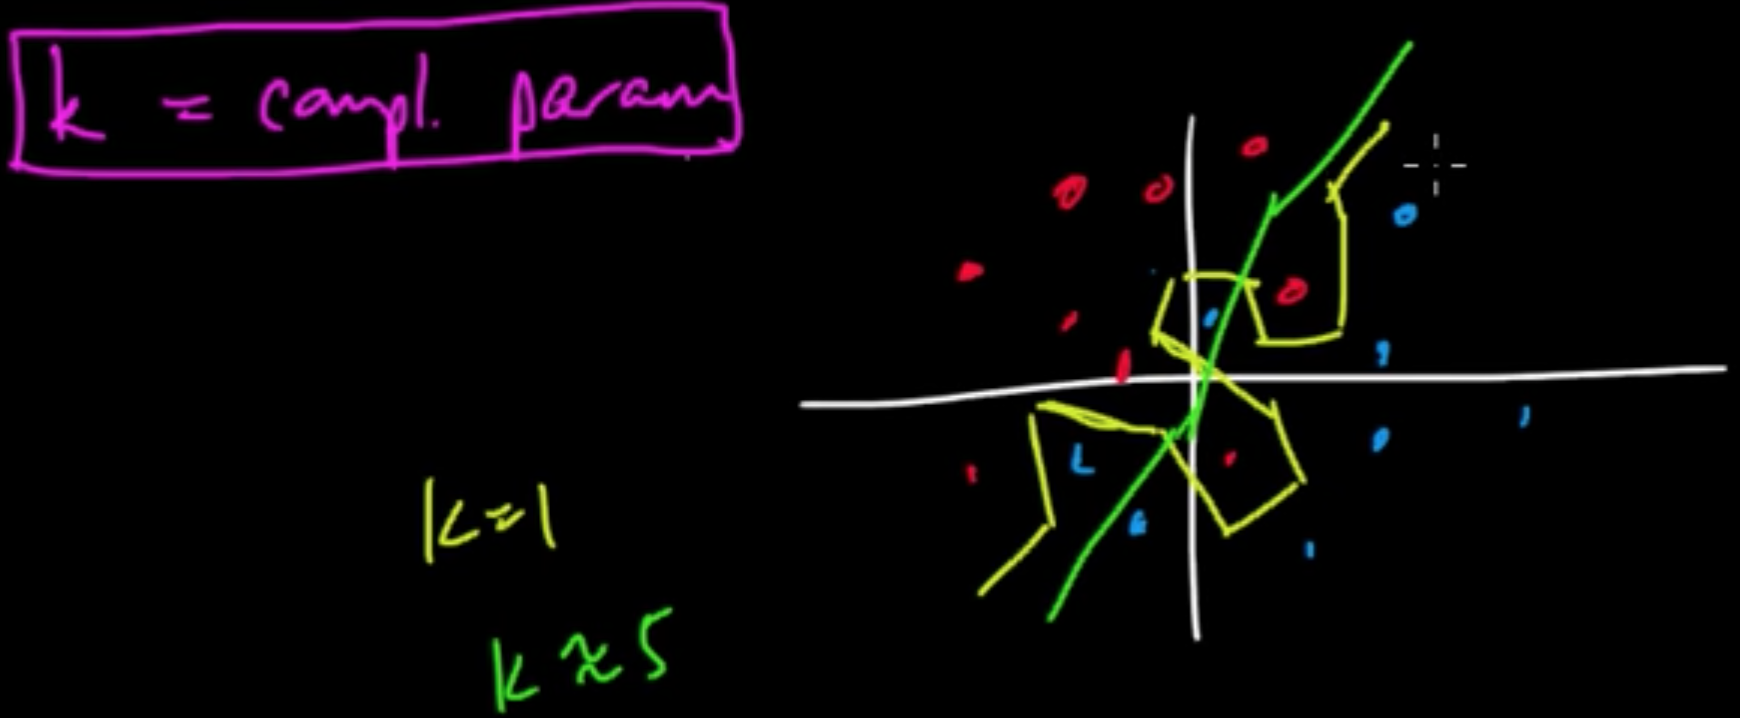 k = compl. param
k=1
k≈5